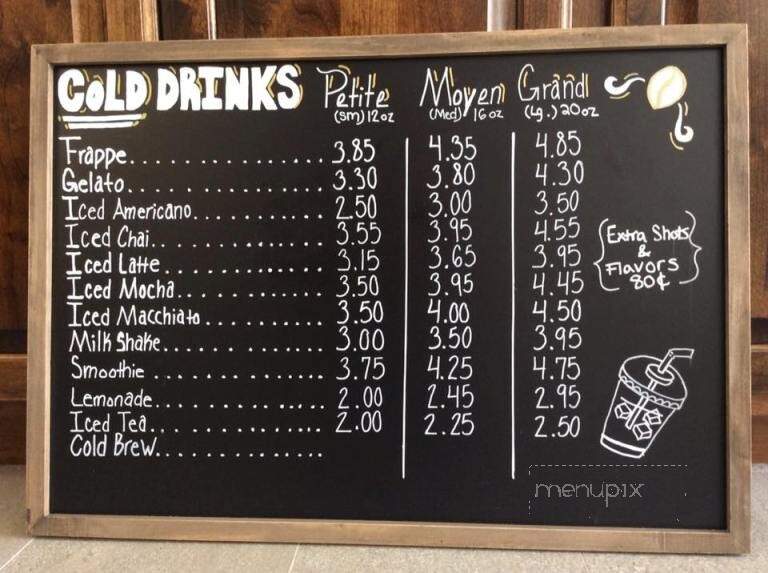 COLD DRINKS Petite Moyen Grand
(sm) 12oz (Med) 16oz (Lg.) 20oz
Frappe..................... 3.85 4.35 4.85
Gelato..................... 3.30 3.80 4.30
Iced Americano............ 2.50 3.00 3.50
Iced Chai.................. 3.55 3.95 4.55
Iced Latte................. 3.15 3.65 3.95
Iced Mocha................ 3.50 3.95 4.45
Iced Macchiato............ 3.50 4.00 4.50
Milk Shake................. 3.00 3.50 3.95
Smoothie.................. 3.75 4.25 4.75
Lemonade.................. 2.00 2.45 2.95
Iced Tea................... 2.00 2.25 2.50
Cold Brew..................
Extra Shots
&
Flavors
80¢
menupix